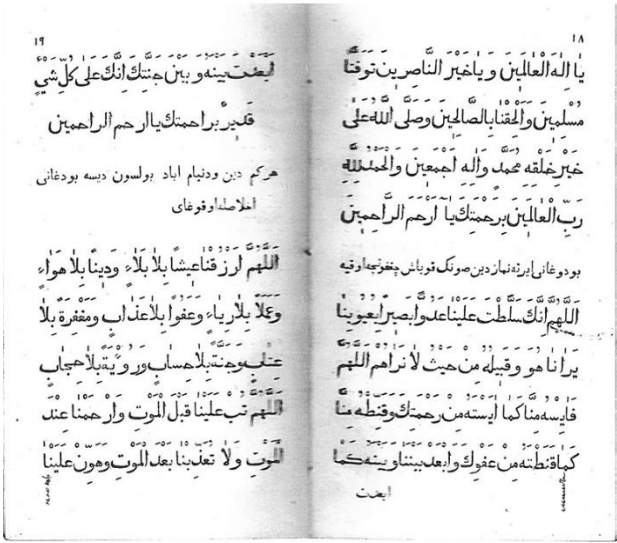 ١٨
يَا اِلٰهَ الْعَالَمِينَ وَيَاخَيْرَ النَّاصِرِينَ تَوَفَّنَا
مُسْلِمِينَ وَاَلْحِقْنَا بِالصَّالِحِينَ وَصَلَّى اللّٰهُ عَلٰى
خَيْرِ خَلْقِهِ مُحَمَّدٍ وَاٰلِهِ اَجْمَعِينَ وَالْحَمْدُ لِلّٰهِ
رَبِّ الْعَالَمِينَ بِرَحْمَتِكَ يَآ اَرْحَمَ الرَّاحِمِينَ
بو دوغانى ايرته نماز دين صونك قوياش چقغونچه اوقيه
اَللّٰهُمَّ اِنَّكَ سَلَّطْتَ عَلَيْنَا عَدُوًّا بَصِيرًا بِعُيُوبِنَا
يَرَانَا هُوَ وَقَبِيلُهُ مِنْ حَيْثُ لَا نَرَاهُمْ اَللّٰهُمَّ
فَاٰيِسْهُ مِنَّا كَمَا اٰيَسْتَهُ مِنْ رَحْمَتِكَ وَقَنِّطْهُ مِنَّا
كَمَا قَنَّطْتَهُ مِنْ عَفْوِكَ وَاَبْعِدْ بَيْنَنَا وَبَيْنَهُ كَمَا
ابعدت
١٩
اَبْعَدْتَ بَيْنَهُ وَبَيْنَ جَنَّتِكَ اِنَّكَ عَلٰى كُلِّ شَيْءٍ
قَدِيرٌ بِرَحْمَتِكَ يَا اَرْحَمَ الرَّاحِمِينَ
هركم دين ودنيام اباد بولسون ديسه بودغانى
اخلاصله اوقوغاى
اَللّٰهُمَّ ارْزُقْنَا عَيْشًا بِلَا بَلَاءٍ وَدِينًا بِلَا هَوَاءٍ
وَعَمَلًا بِلَا رِيَاءٍ وَعَفْوًا بِلَا عَذَابٍ وَمَغْفِرَةً بِلَا
عِتَابٍ وَجَنَّةً بِلَا حِسَابٍ وَرُؤْيَةً بِلَا حِجَابٍ
اَللّٰهُمَّ تُبْ عَلَيْنَا قَبْلَ الْمَوْتِ وَارْحَمْنَا عِنْدَ
الْمَوْتِ وَلَا تُعَذِّبْنَا بَعْدَ الْمَوْتِ وَهَوِّنْ عَلَيْنَا